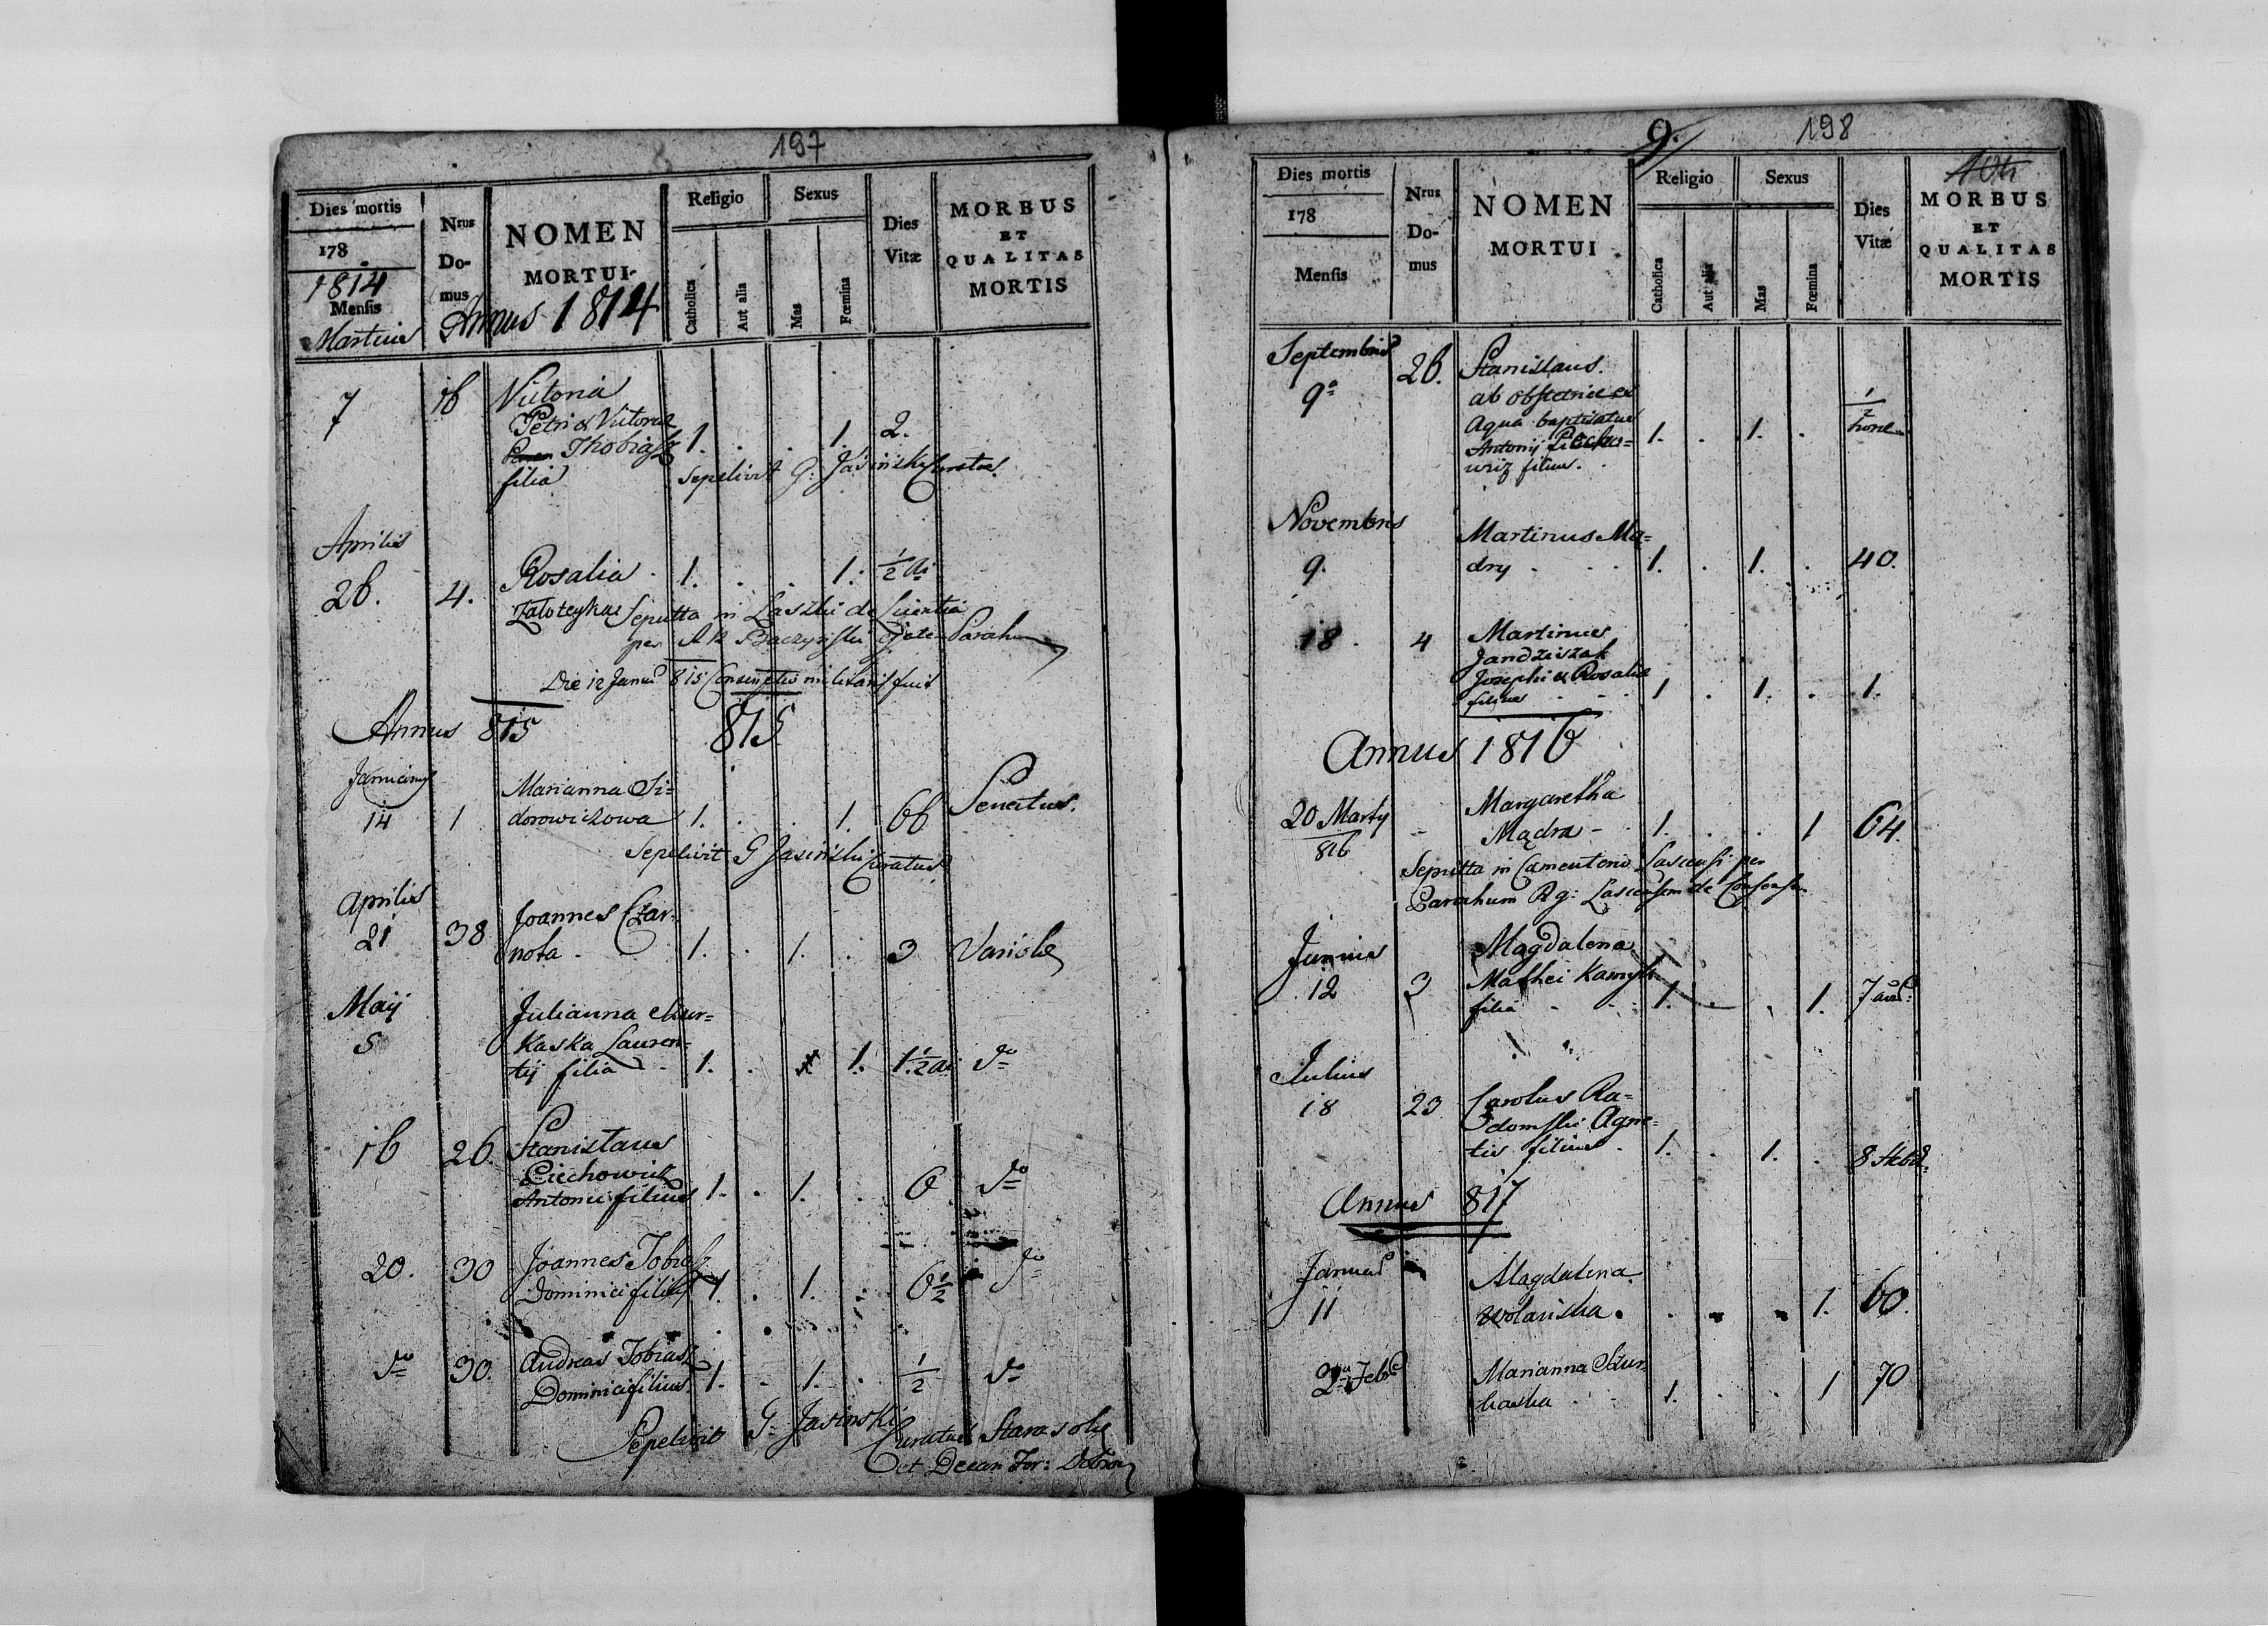 197
Dies mortis
178
1814
Mensis
Martius
Nrus
Do-
mus
NOMEN
MORTUI
Annus 1814
Religio
Catholica
Aut alia
Sexus
Mas
Fœmina
Dies
Vitæ
MORBUS
ET
QUALITAS
MORTIS
7 16 Victoria
Petri et Victoriae
Thobiasz 1. . . 1. 2.
filia Sepelivit G: Jasinski Curatus.
Aprilis
26. 4. Rosalia 1. . . 1. 1/2 ai
Sepulta in Laszki de Licentia
per Baczyński
Die 12 Januar 815 Conscriptio militaris fuit
Annus 815 815
Januarius
14 1 Marianna Si=
dorowiczowa 1. . . 1. 66 Senectus.
Sepelivit G Jasiński Curatus
Aprilis
21 38 Joannes Czar=
nota 1. . 1. . 3 Variole
Maij
5 Julianna
kaska Lauren=
tij filia 1. . . 1. 1 1/2 ai do
16 26. Stanislaus
Ciechowicz
Antonii filius 1. . 1. . 6 do
20. 30 Joannes Tobiasz
Dominici filius 1. . 1. . 6 1/2 do
do 30. Andreas Tobiasz
Dominici filius. 1. . 1. . 1/2 do
Sepelivit G. Jasinski
Curatus Starasolie
et Decan For:
9. 198
Dies mortis
178
Mensis
Nrus
Do-
mus
NOMEN
MORTUI
Religio
Catholica
Aut alia
Sexus
Mas
Fœmina
Dies
Vitæ
MORBUS
ET
QUALITAS
MORTIS
Septembris
9a 26. Stanislaus.
ab obstetrice ex
Aqua baptisatus
Antonij Ciecho=
wicz filius. 1. . 1. . 1/2 horae
Novembris
9. Martinus Mą=
dry 1. . 1. . 40.
18. 4 Martinus
Jandziszak
Josephi et Rosaliae
filius 1 . 1. . 1.
Annus 1816
20 Martij
816
Margaretha
Mądra 1. . . 1 64.
Sepulta in Camenterio Lascensi per
Parochum Rg: Lascensem de Consensu
Junius
12 3 Magdalena
Mathei
filia 1. . . 1. 7
Julius
18 23 Carolus Ra=
domski Agne=
tis filius 1. . 1. . 8 Hebd.
Annus 817
Januar
11 Magdalena
Wolanska . . . 1. 60.
2 Feb Marianna
kaska 1. . . 1 70